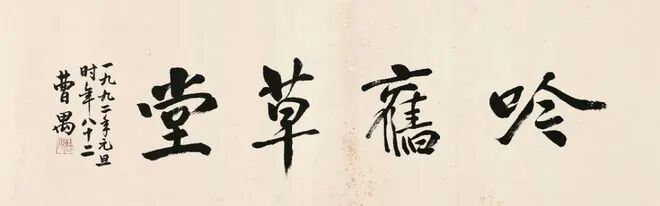 吟舊草堂
一九九二年元旦
时年八十二
曹禺